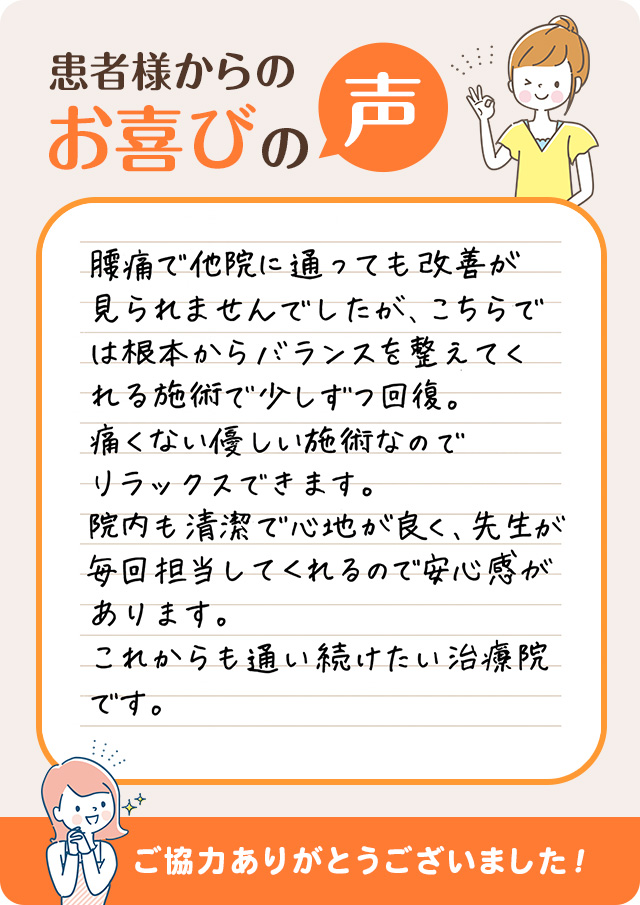 患者様からの
お喜びの声
腰痛で他院に通っても改善が
見られませんでしたが、こちらで
は根本からバランスを整えてく
れる施術で少しずつ回復。
痛くない優しい施術なので
リラックスできます。
院内も清潔で心地が良く、先生が
毎回担当してくれるので安心感が
あります。
これからも通い続けたい治療院
です。
ご協力ありがとうございました!